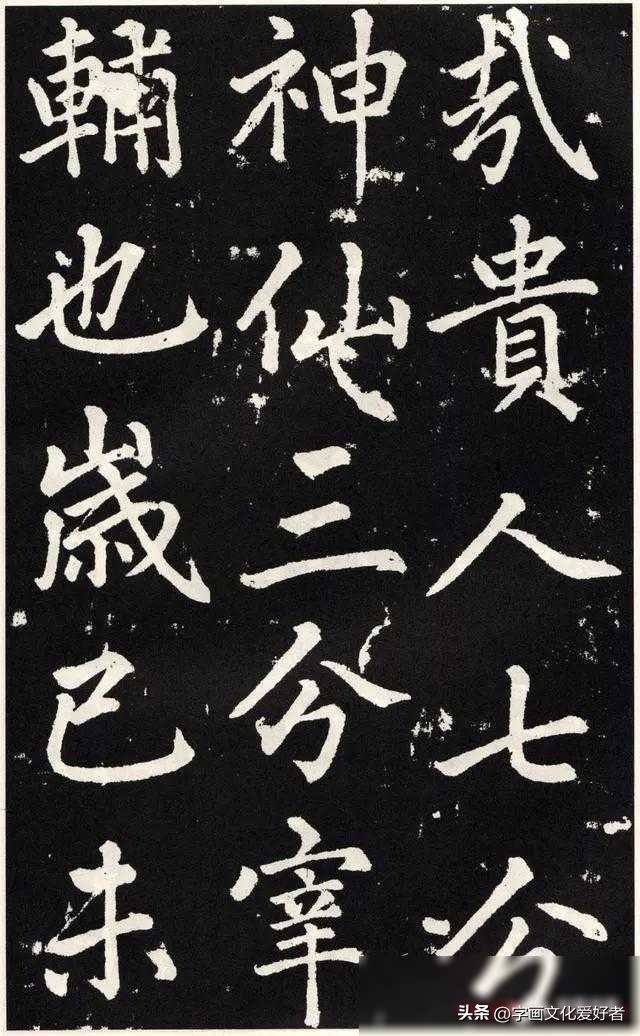 哉貴人七分
神仙三分宰
輔也歲己未
头条 @字画文化爱好者